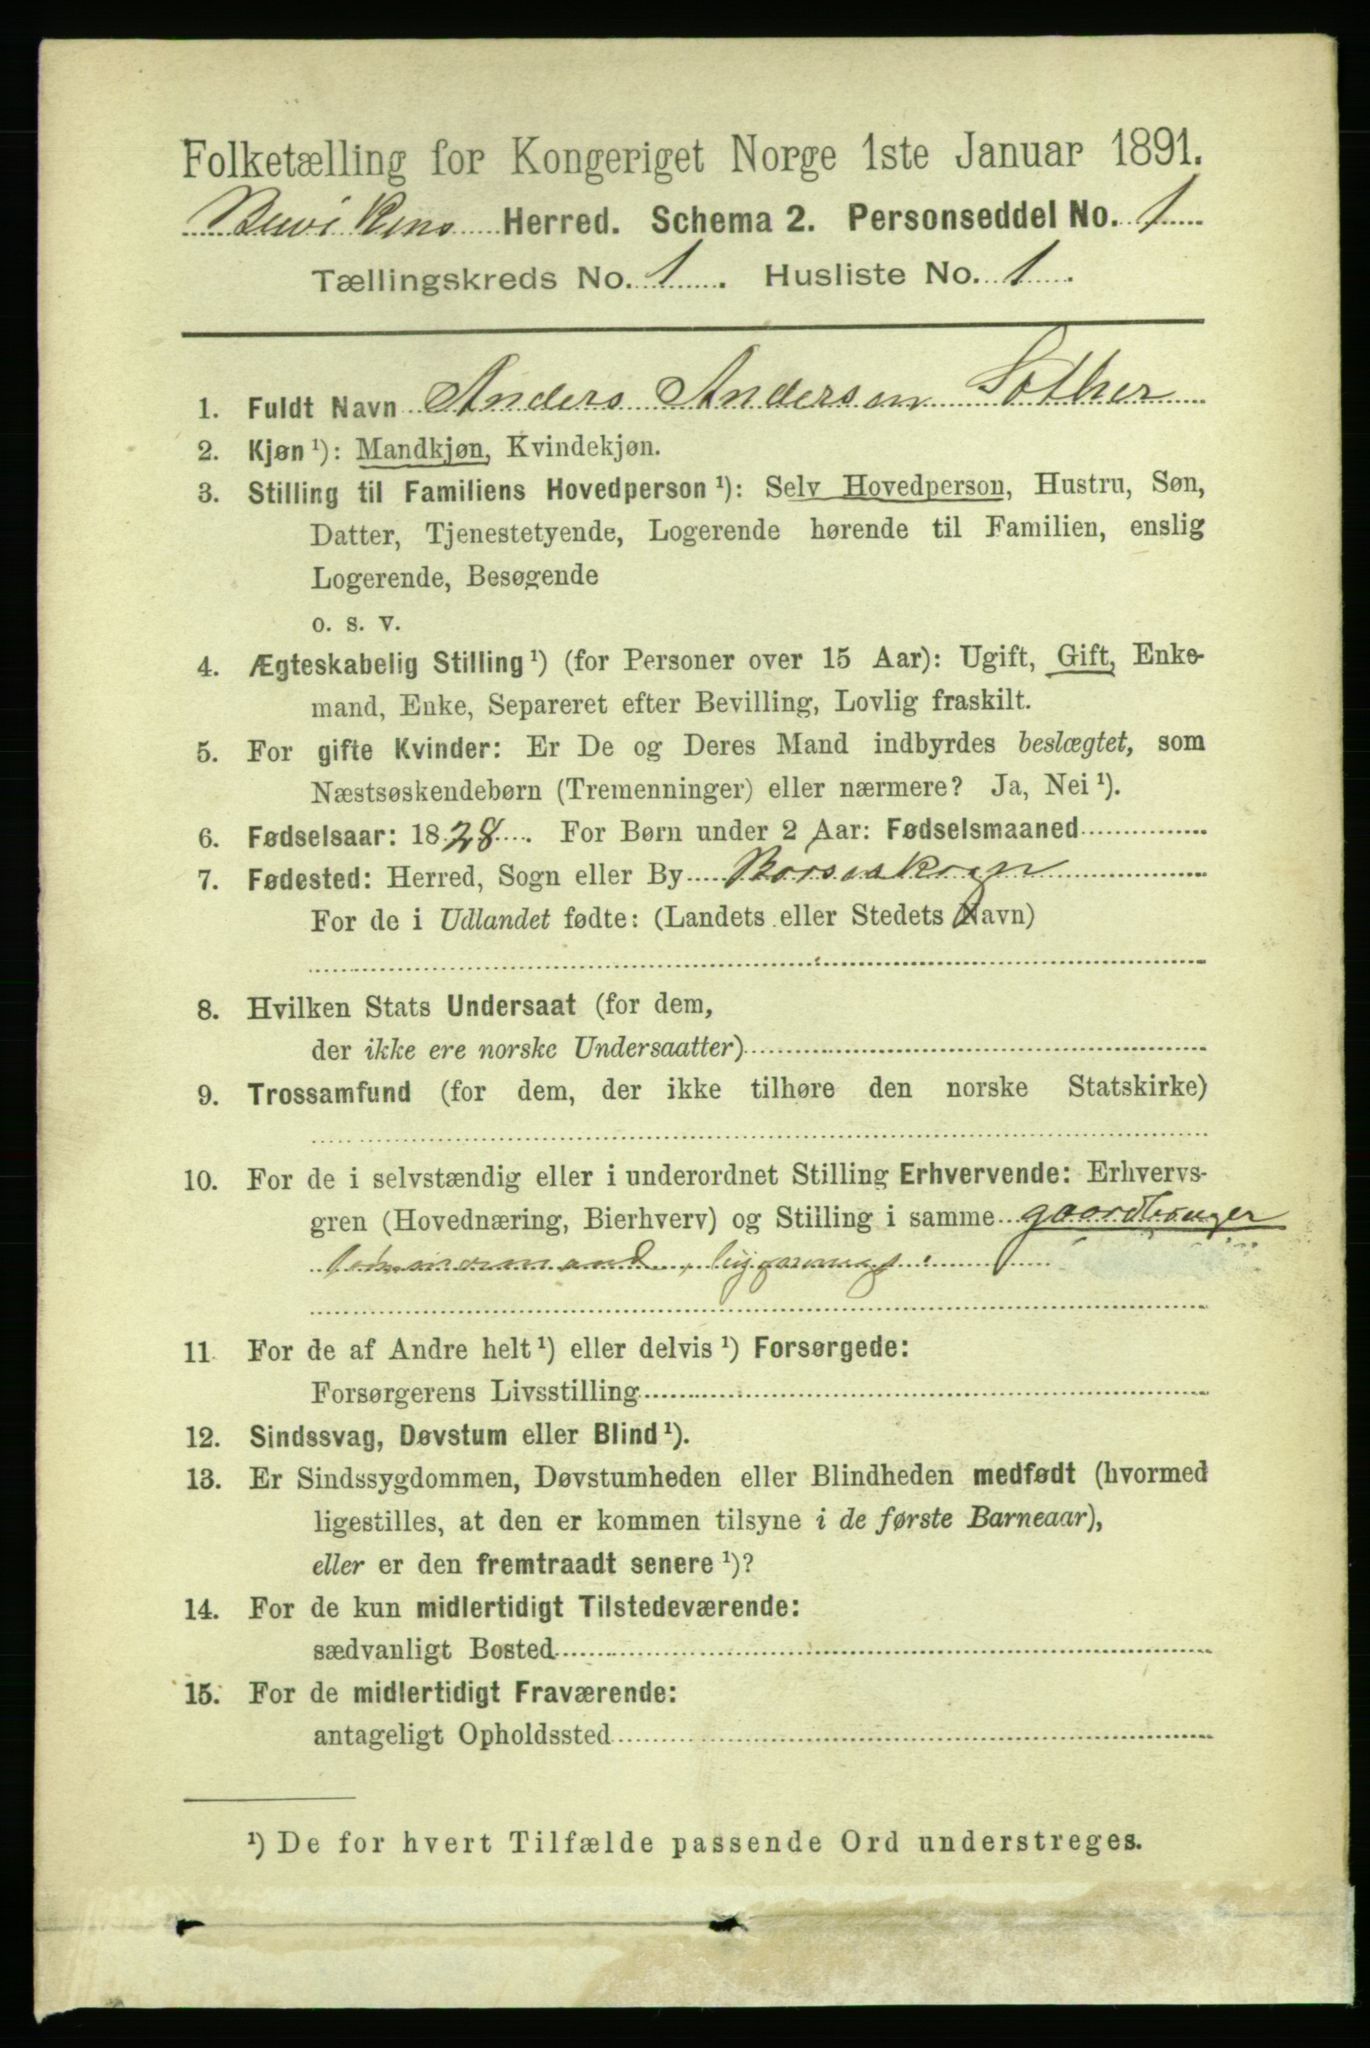 Folketælling for Kongeriget Norge 1ste Januar 1891.
Buvikens Herred. Schema 2. Personseddel No. 1
Tællingskreds No. 1. Husliste No. 1.
1. Fuldt Navn Anders Andersen Sather
2. Kjøn ¹): Mandkjøn, Kvindekjøn.
3. Stilling til Familiens Hovedperson ¹): Selv Hovedperson, Hustru, Søn,
Datter, Tjenestetyende, Logerende hørende til Familien, enslig
Logerende, Besøgende
o. s. v.
4. Ægteskabelig Stilling ¹) (for Personer over 15 Aar): Ugift, Gift, Enke-
mand, Enke, Separeret efter Bevilling, Lovlig fraskilt.
5. For gifte Kvinder: Er De og Deres Mand indbyrdes beslægtet, som
Næstsøskendebørn (Tremenninger) eller nærmere? Ja, Nei ¹).
6. Fødselsaar: 1828. For Børn under 2 Aar: Fødselsmaaned
7. Fødested: Herred, Sogn eller By Børseskogn
For de i Udlandet fødte: (Landets eller Stedets Navn)
8. Hvilken Stats Undersaat (for dem,
der ikke ere norske Undersaatter)
9. Trossamfund (for dem, der ikke tilhøre den norske Statskirke)
10. For de i selvstændig eller i underordnet Stilling Erhvervende: Erhvervs-
gren (Hovednæring, Bierhverv) og Stilling i samme gaardbruger
tømmermand,
11 For de af Andre helt ¹) eller delvis ¹) Forsørgede:
Forsørgerens Livsstilling
12. Sindssvag, Døvstum eller Blind ¹).
13. Er Sindssygdommen, Døvstumheden eller Blindheden medfødt (hvormed
ligestilles, at den er kommen tilsyne i de første Barneaar),
eller er den fremtraadt senere ¹)?
14. For de kun midlertidigt Tilstedeværende:
sædvanligt Bosted
15. For de midlertidigt Fraværende:
antageligt Opholdssted
¹) De for hvert Tilfælde passende Ord understreges.